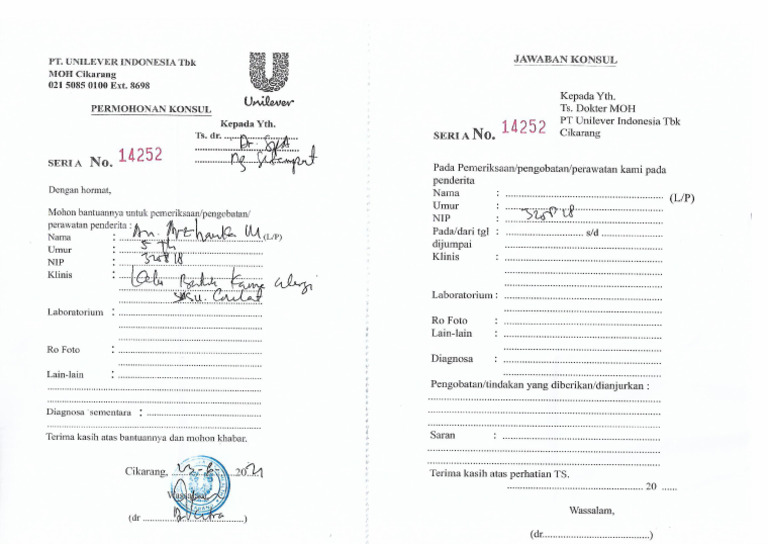 PT. UNILEVER INDONESIA Tbk
MOH Cikarang
021 5085 0100 Ext. 8698
Unilever
PERMOHONAN KONSUL
Kepada Yth.
Ts. dr. Dr. SpA
Di Setempat
SERI A No. 14252
Dengan hormat,
Mohon bantuannya untuk pemeriksaan/pengobatan/
perawatan penderita :
Nama : An. M (L/P)
Umur : 5 Th
NIP : 320818
Klinis : Batuk alergi
susu. Coklat
Laboratorium :
Ro Foto :
Lain-lain :
Diagnosa sementara :
Terima kasih atas bantuannya dan mohon khabar.
Cikarang, 2021
Wassalam,
(dr )
JAWABAN KONSUL
Kepada Yth.
Ts. Dokter MOH
PT Unilever Indonesia Tbk
Cikarang
SERI A No. 14252
Pada Pemeriksaan/pengobatan/perawatan kami pada
penderita
Nama : (L/P)
Umur :
NIP : 320818
Pada/dari tgl : s/d
dijumpai
Klinis :
Laboratorium :
Ro Foto :
Lain-lain :
Diagnosa :
Pengobatan/tindakan yang diberikan/dianjurkan :
Saran :
Terima kasih atas perhatian TS.
20
Wassalam,
(dr. )